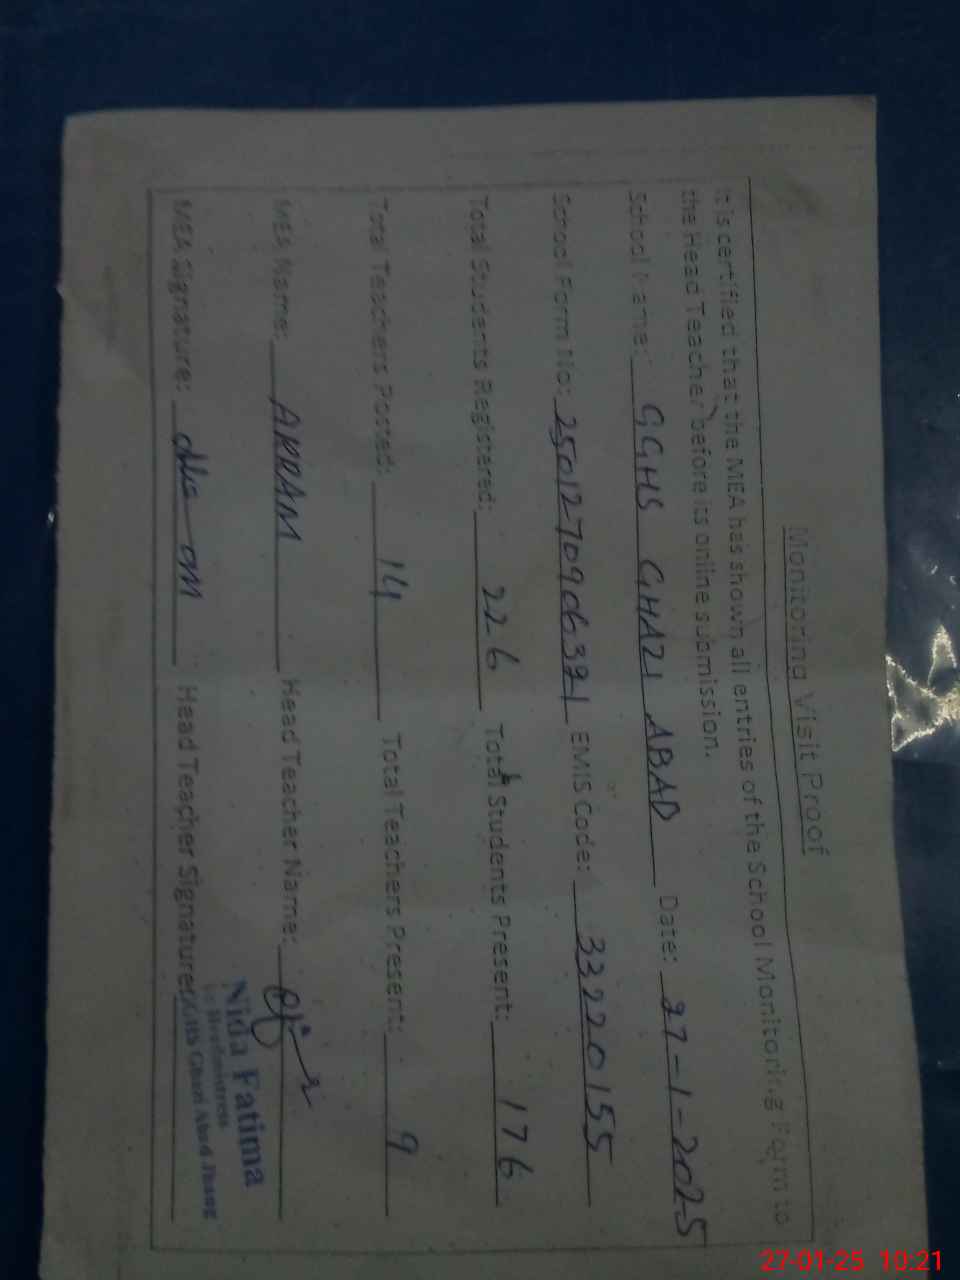 Monitoring Visit Proof
It is certified that the MEA has shown all entries of the School Monitoring Form to
the Head Teacher before its online submission.
School Name: GGHS GHAZI ABAD Date: 27-1-2025
School Form No: EMIS Code: 33220155
Total Students Registered: 226 Total Students Present: 176
Total Teachers Posted: 14 Total Teachers Present: 9
MEA Name: AKRAM Head Teacher Name:
MEA Signature: Head Teacher Signature:
Nida Fatima
Headmistress
GGHS Ghazi Abad Jhang
27-01-25 10:21